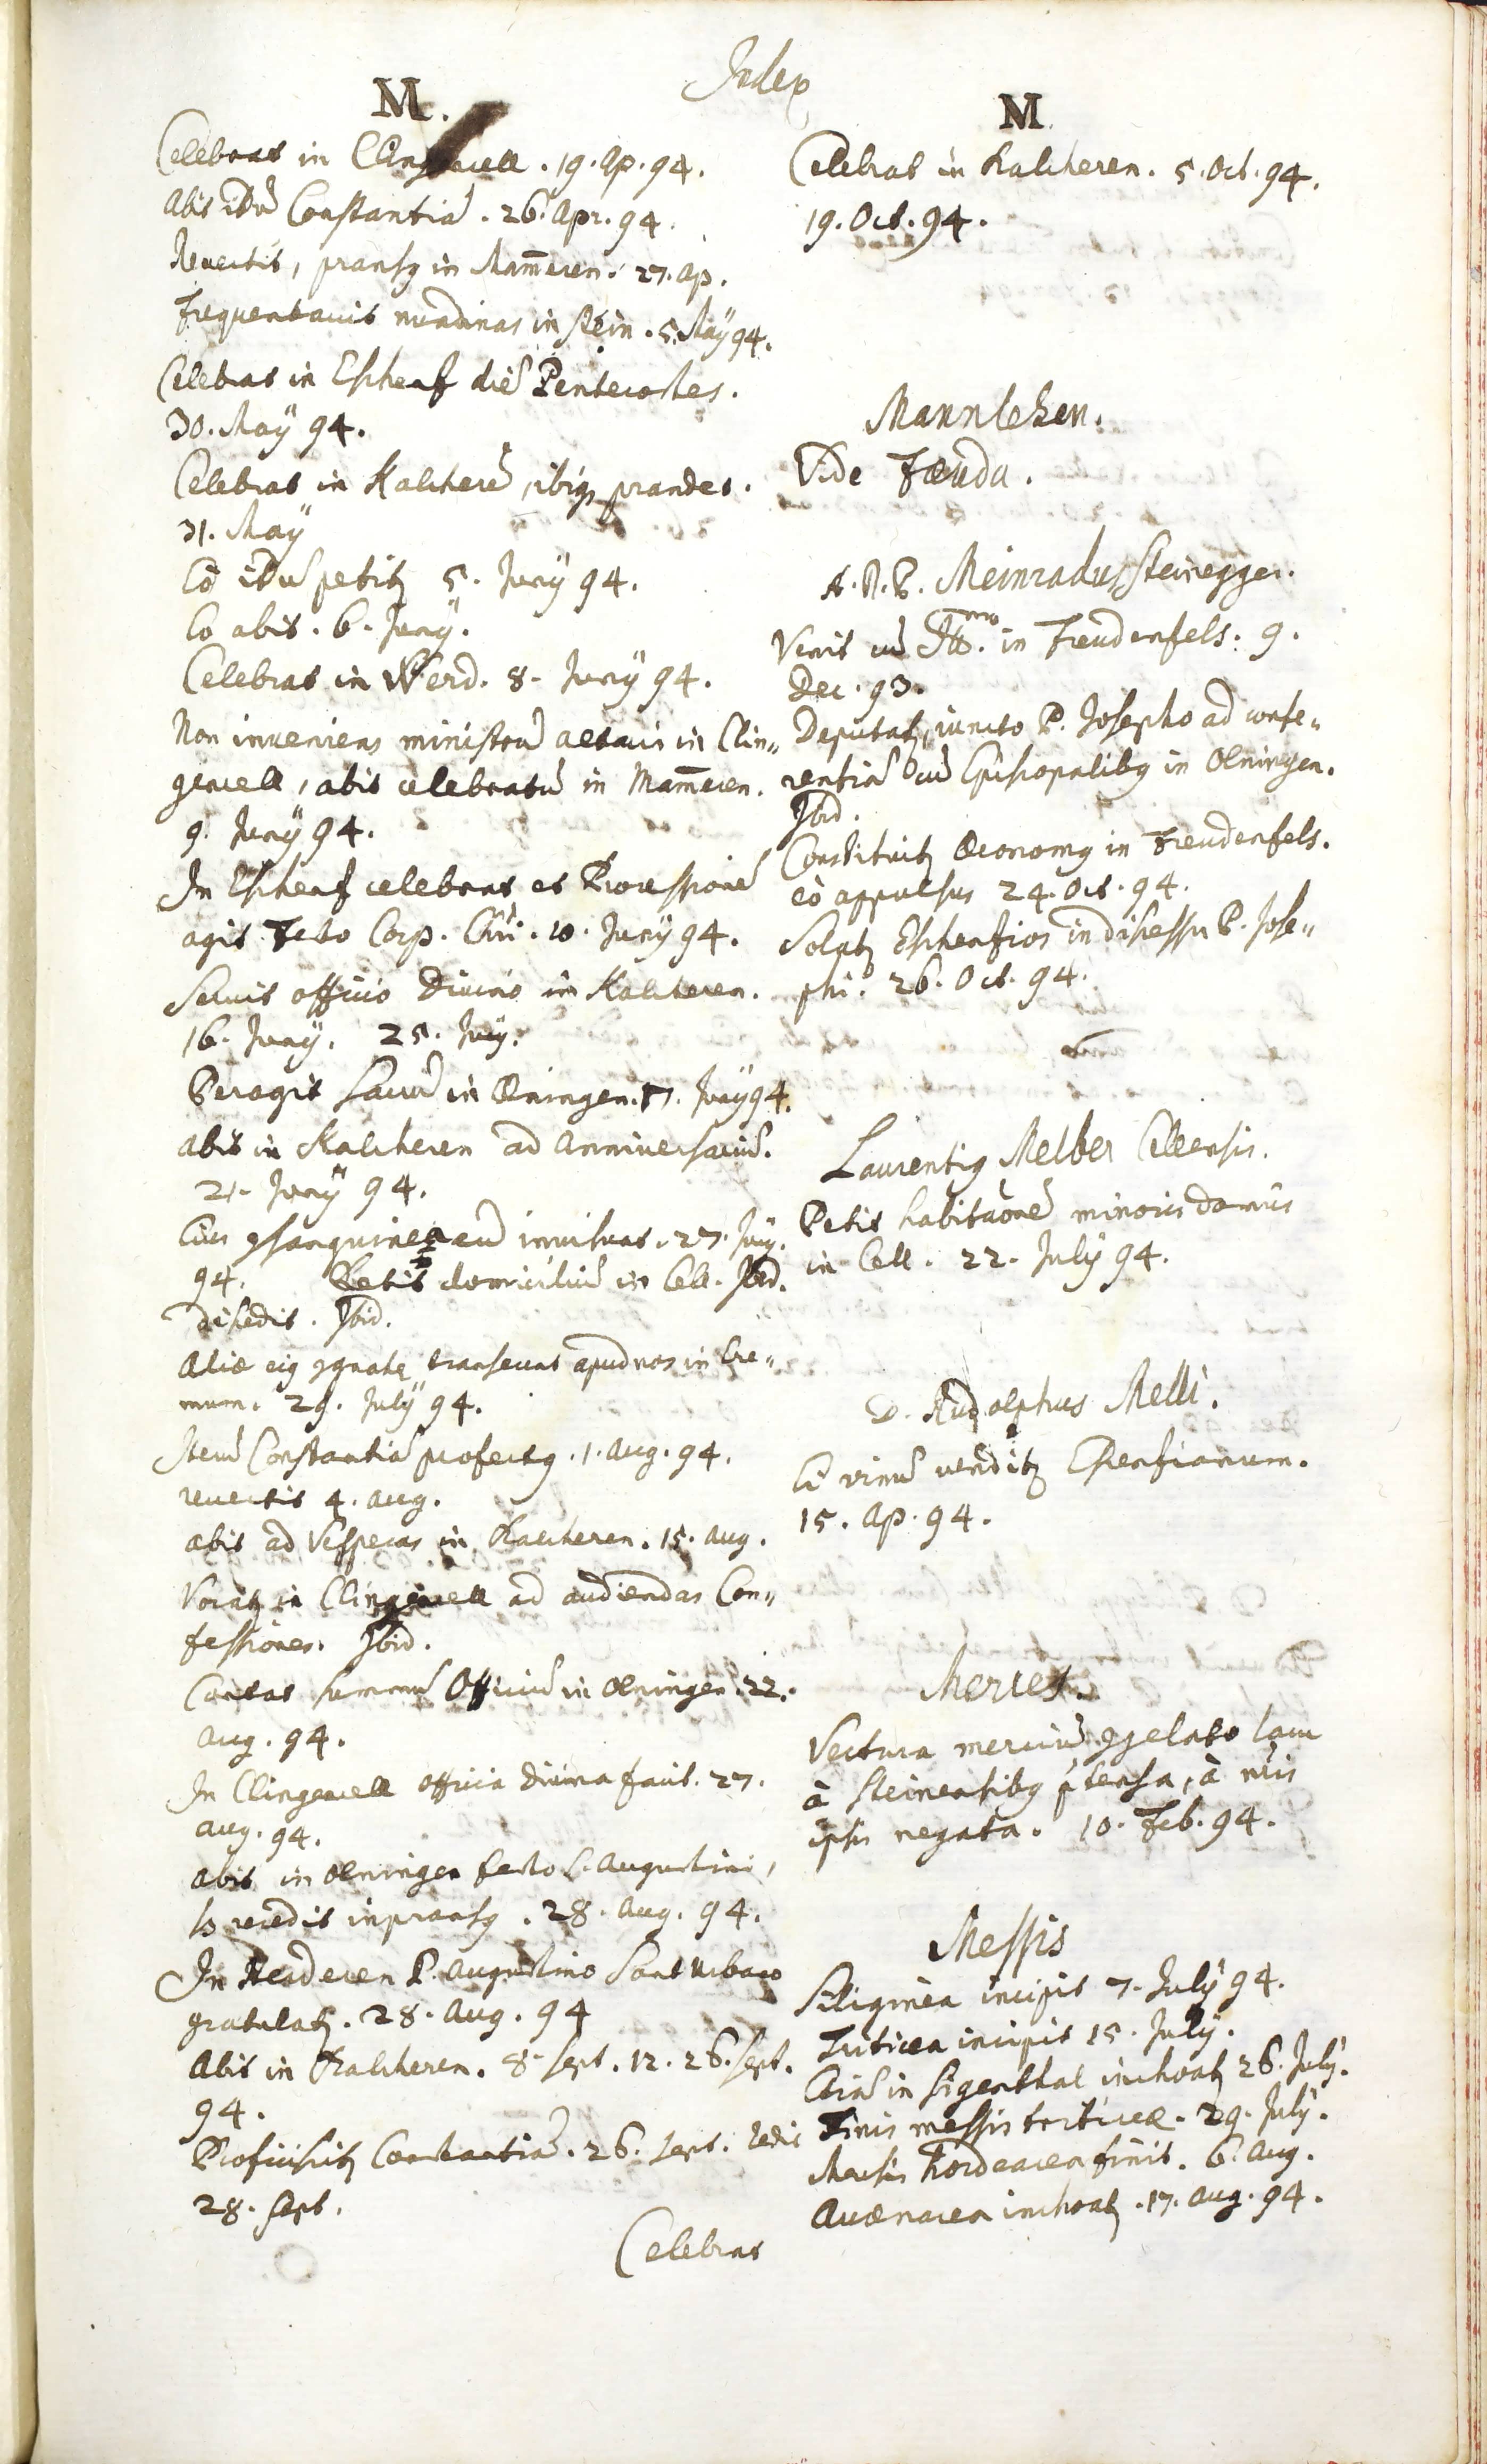 Index
M.
Celebrat in Clingenzell. 19. Ap. 94.
Abit Constantiã. 26. Apr. 94.
Revertit, pransq in Mam̃eren. 27. Ap.
Frequentavit nundinas in Stein. 5. Maÿ 94.
Celebrat in Eschenz die Pentecostes.
30. Maÿ 94.
Celebrat in Kalcherẽ, ibiq, prandet.
31. Maÿ
Eò petitʒ 5. Junÿ 94.
Eo abit. 6. Junÿ.
Celebrat in Werd. 8. Junÿ 94.
Non inveniens ministrũ altaris in Clin„
genzell, abit celebratũ in Mam̃eren.
9. Junÿ 94.
In Eschenz celebrat et Processionẽ
agit Festo Corp. Chri. 10. Junÿ 94.
Servit officio Divino in Kalcheren.
16. Junÿ. 25. July.
Peragit Sacrũ in Œningen. 17. Junÿ 94.
Abit in Kalcheren ad Anniversariũ.
21. Junÿ 94.
Eius gsanguinea eũ invisunt. 27. July.
94. Petit domiciliũ in Cell. Ibid.
discedit. Ibid.
Aliæ eiq transeunt apud nos in Ere„
mum. 29. Julÿ 94.
Itẽ Constantiã profectq. 1. Aug. 94.
revertit 4. Aug.
Abit ad Vesperas in Kalcheren. 15. Aug.
Vocatʒ in Clingenzell ad audiendas Con„
fessiones. Ibid.
Cantat summũ Officiũ in Œningen. 22.
Aug. 94.
In Clingenzell officia Divina facit. 27.
Aug. 94.
Abit in Œningen festo S. Augustini,
sᵈ recedit inpransq. 28. Aug. 94.
In P. Augustino Sant Urbano
gratulatʒ. 28. Aug. 94
Abit in Kalcheren. 8. Sept. 12. 26. Sept.
94.
Proficiscitʒ Constantiã. 26. Sept. redit
28. Sept.
Celebrat
M
Celebrat in Kalcheren. 5. Oct. 94.
19. Oct. 94.
Mannlehen.
Vide Feuda.
A. R. P. Meinradus Steinegger.
Venit cũ in Freudenfels. 9.
Dec. 93.
Deputatʒ, iuncto P. Josepho ad confe„
rentiã cũ Episcopalibq in Œningen.
Ibid.
Constituitʒ Œconomq in Freudenfels.
eò appulsus 24. Oct. 94.
Solatʒ Eschenzios in discessu P. Jose„
phi. 26. Oct. 94.
Laurentiq Melber Cellensis.
Petit habitãonẽ minoris domus
in Cell. 22. Julÿ 94.
D. Rudolphus Melli.
Ei vinũ venditʒ Eschenzianum.
15. Ap. 94.
Merces.
Vectura merciũ ggelato lacu
à Steinentibq ptensa, à nris
ipsis negata. 10. Feb. 94.
Messis
Siliginea incipit 7. Julÿ 94.
Triticea incipit 15. Julÿ.
Etiã in Sigenthal inchoatʒ 26. Julÿ.
Finis messis triticeæ. 29. Julÿ.
Messis hordeacea finit. 6. Aug.
Avænacea inchoatʒ. 17. Aug. 94.